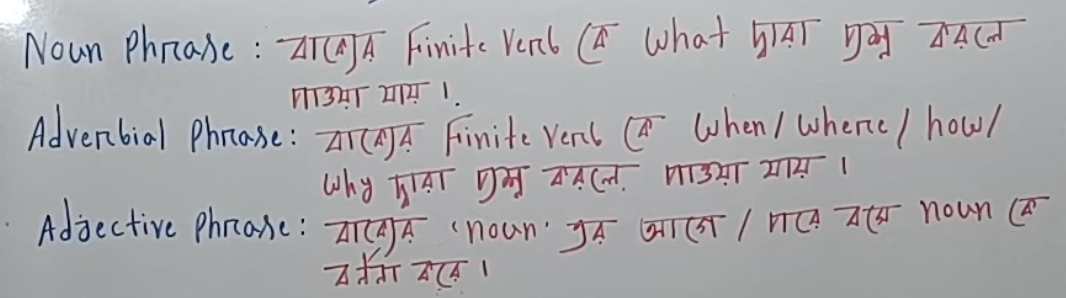 Noun Phrase : বাক্যের Finite Verb কে What দ্বারা প্রশ্ন করলে
পাওয়া যায় ।.
Adverbial Phrase : বাক্যের Finite Verb কে When / Where / how /
Why দ্বারা প্রশ্ন করলে. পাওয়া যায় ।
Adjective Phrase : বাক্যের 'noun' এর আগে / পরে বসে noun কে
বর্ননা করে ।